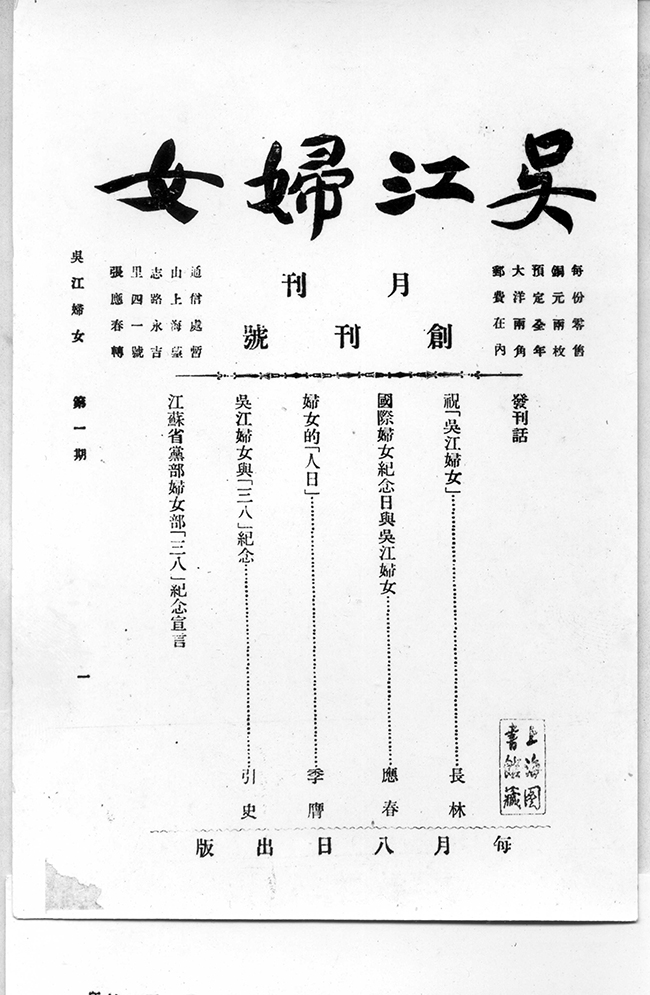 吳江婦女
月刊
創刊號
每份零售
銅元兩枚
預定全年
大洋兩角
郵費在內
通信處暫
山上海蒙
志路永吉
里四一號
張應春轉
發刊話
祝「吳江婦女」………長林
國際婦女紀念日與吳江婦女………應春
婦女的「人日」………季膺
吳江婦女與「三八」紀念………引史
江蘇省黨部婦女部「三八」紀念宣言
吳江婦女 第一期 一
每月八日出版
上海圖
書館藏